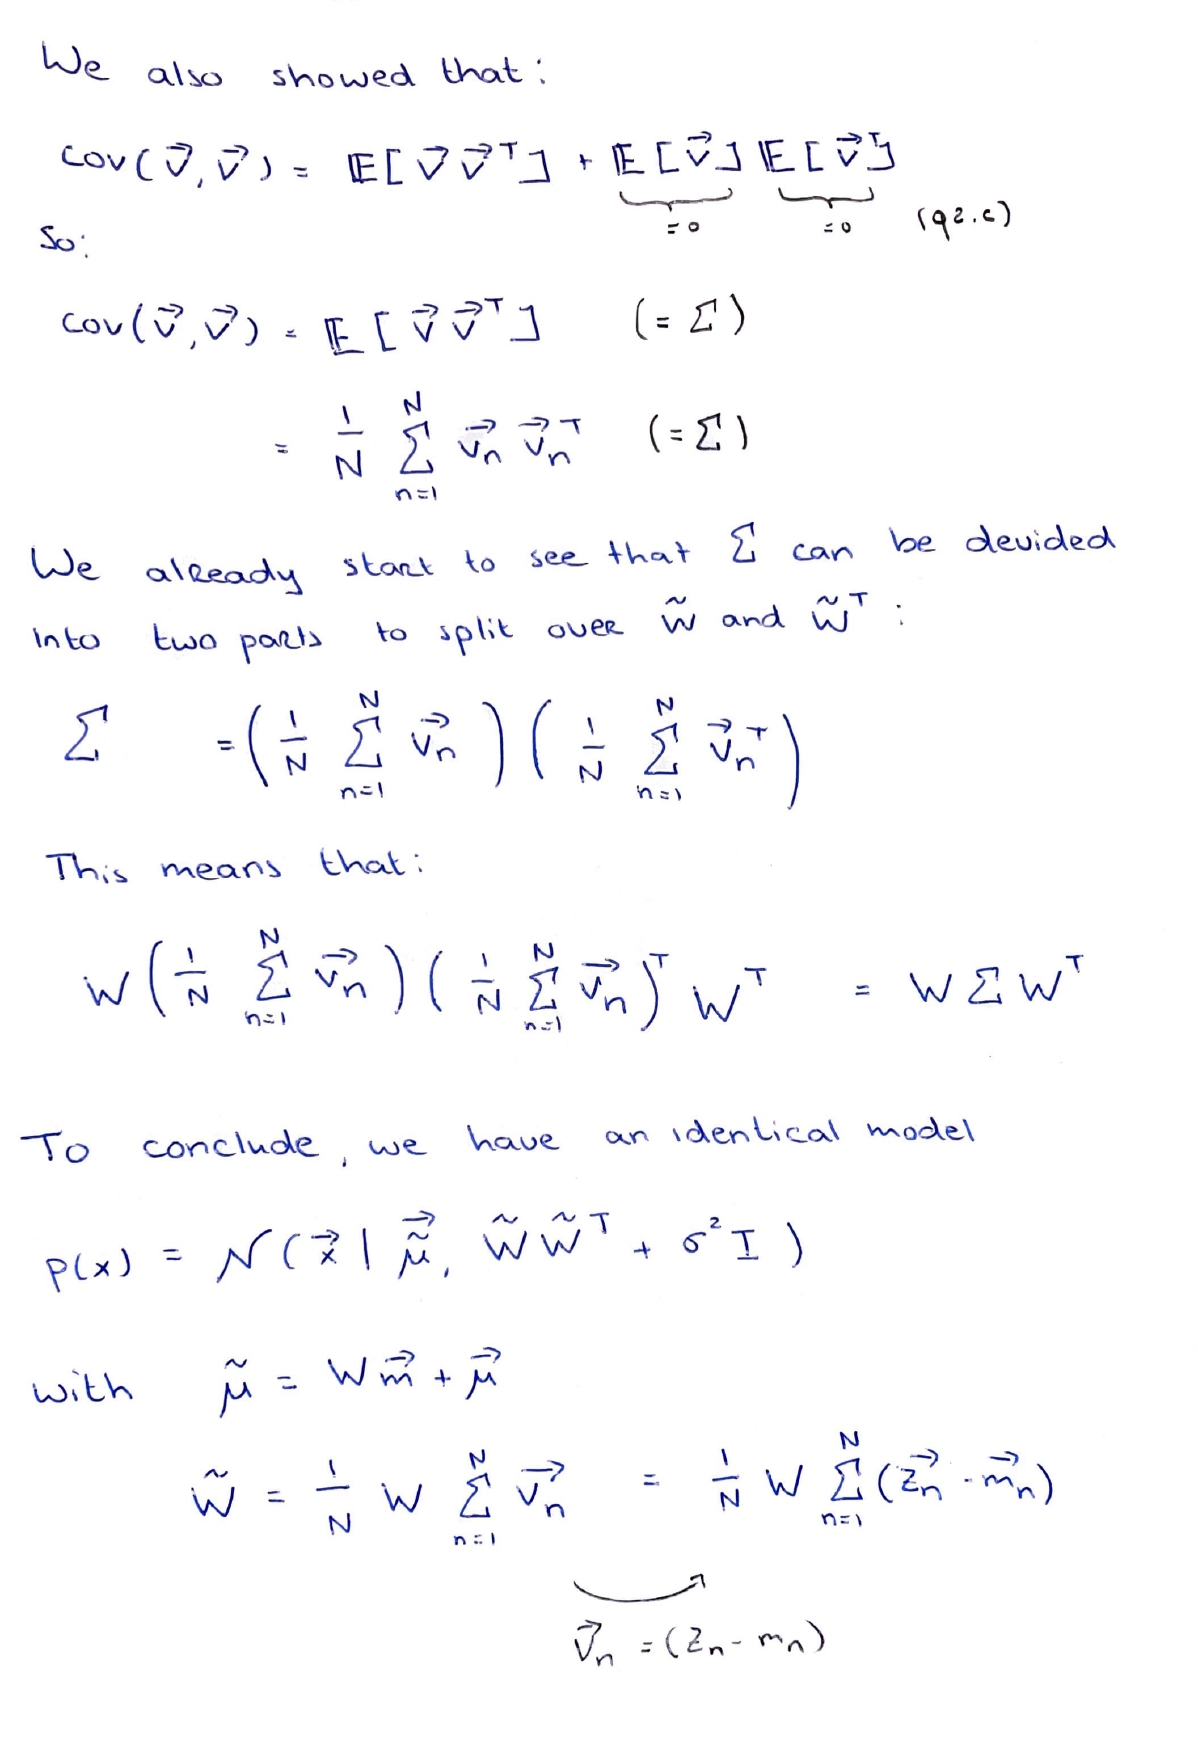 We also showed that:
cov(v⃗, v⃗) = 𝔼[v⃗ v⃗ᵀ] + 𝔼[v⃗] 𝔼[v⃗ᵀ]
= 0 = 0 (q2.c)
So:
cov(v⃗, v⃗) = 𝔼[v⃗ v⃗ᵀ] (= Σ)
= 1/N Σ_{n=1}^{N} v⃗ₙ v⃗ₙᵀ (= Σ)
We already start to see that Σ can be devided
into two parts to split over W̃ and W̃ᵀ :
Σ = (1/N Σ_{n=1}^{N} v⃗ₙ) (1/N Σ_{n=1}^{N} v⃗ₙᵀ)
This means that:
W (1/N Σ_{n=1}^{N} v⃗ₙ) (1/N Σ_{n=1}^{N} v⃗ₙ)ᵀ Wᵀ = W Σ Wᵀ
To conclude, we have an identical model
p(x) = N(x⃗ | μ̃⃗, W̃ W̃ᵀ + σ² I)
with μ̃ = W m⃗ + μ⃗
W̃ = 1/N W Σ_{n=1}^{N} v⃗ₙ = 1/N W Σ_{n=1}^{N} (z⃗ₙ - m⃗ₙ)
v⃗ₙ = (zₙ - mₙ)